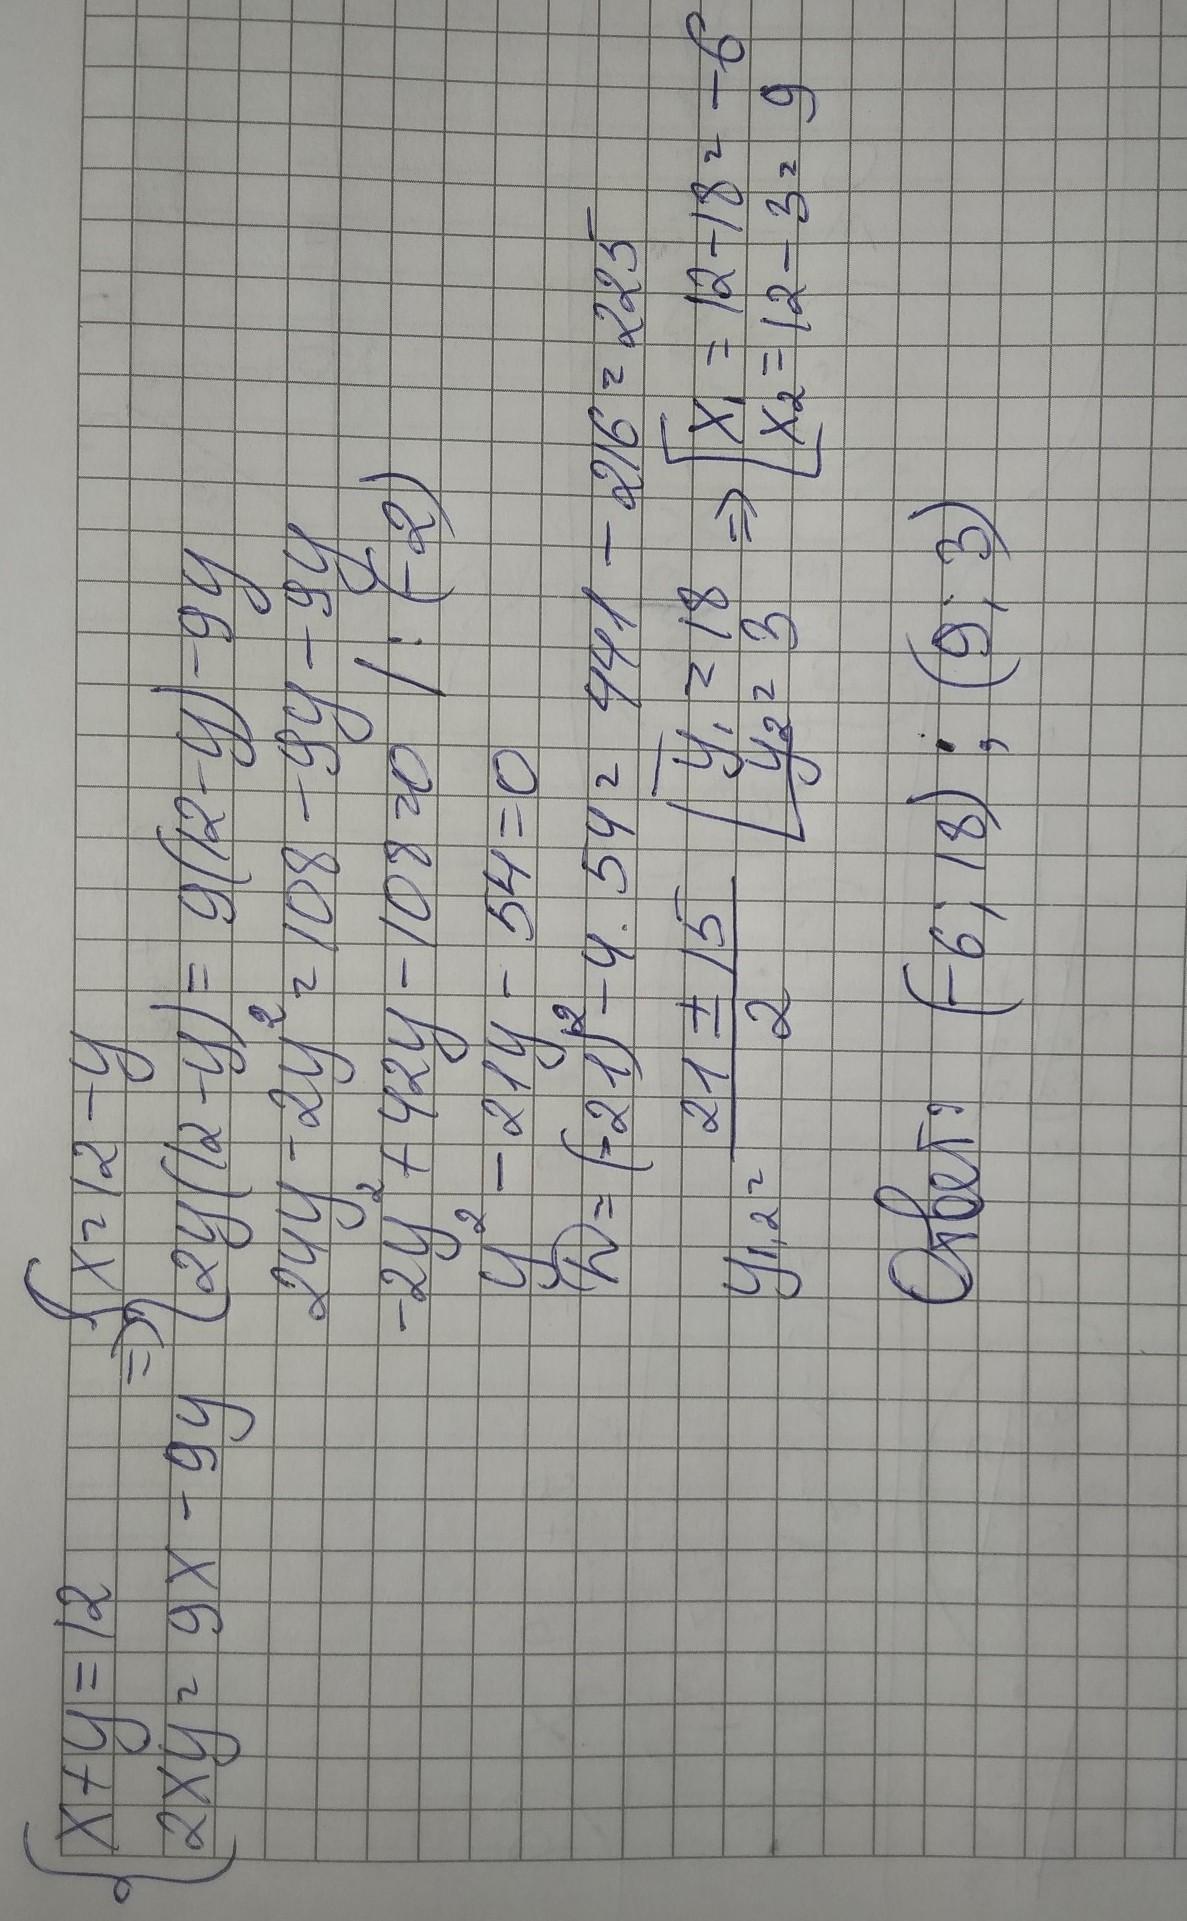 x+y=12 => x=12-y
2xy=9x-9y 2y(12-y)=9(12-y)-9y
24y-2y²=108-9y-9y
-2y²+42y-108=0 /:(-2)
y²-21y-54=0
D=(-21)²-4·54=441-216=225
y1,2=21±15/2 [y1=18 y2=3 => [x1=12-18=-6 x2=12-3=9
Ответ: (-6; 18); (9; 3)